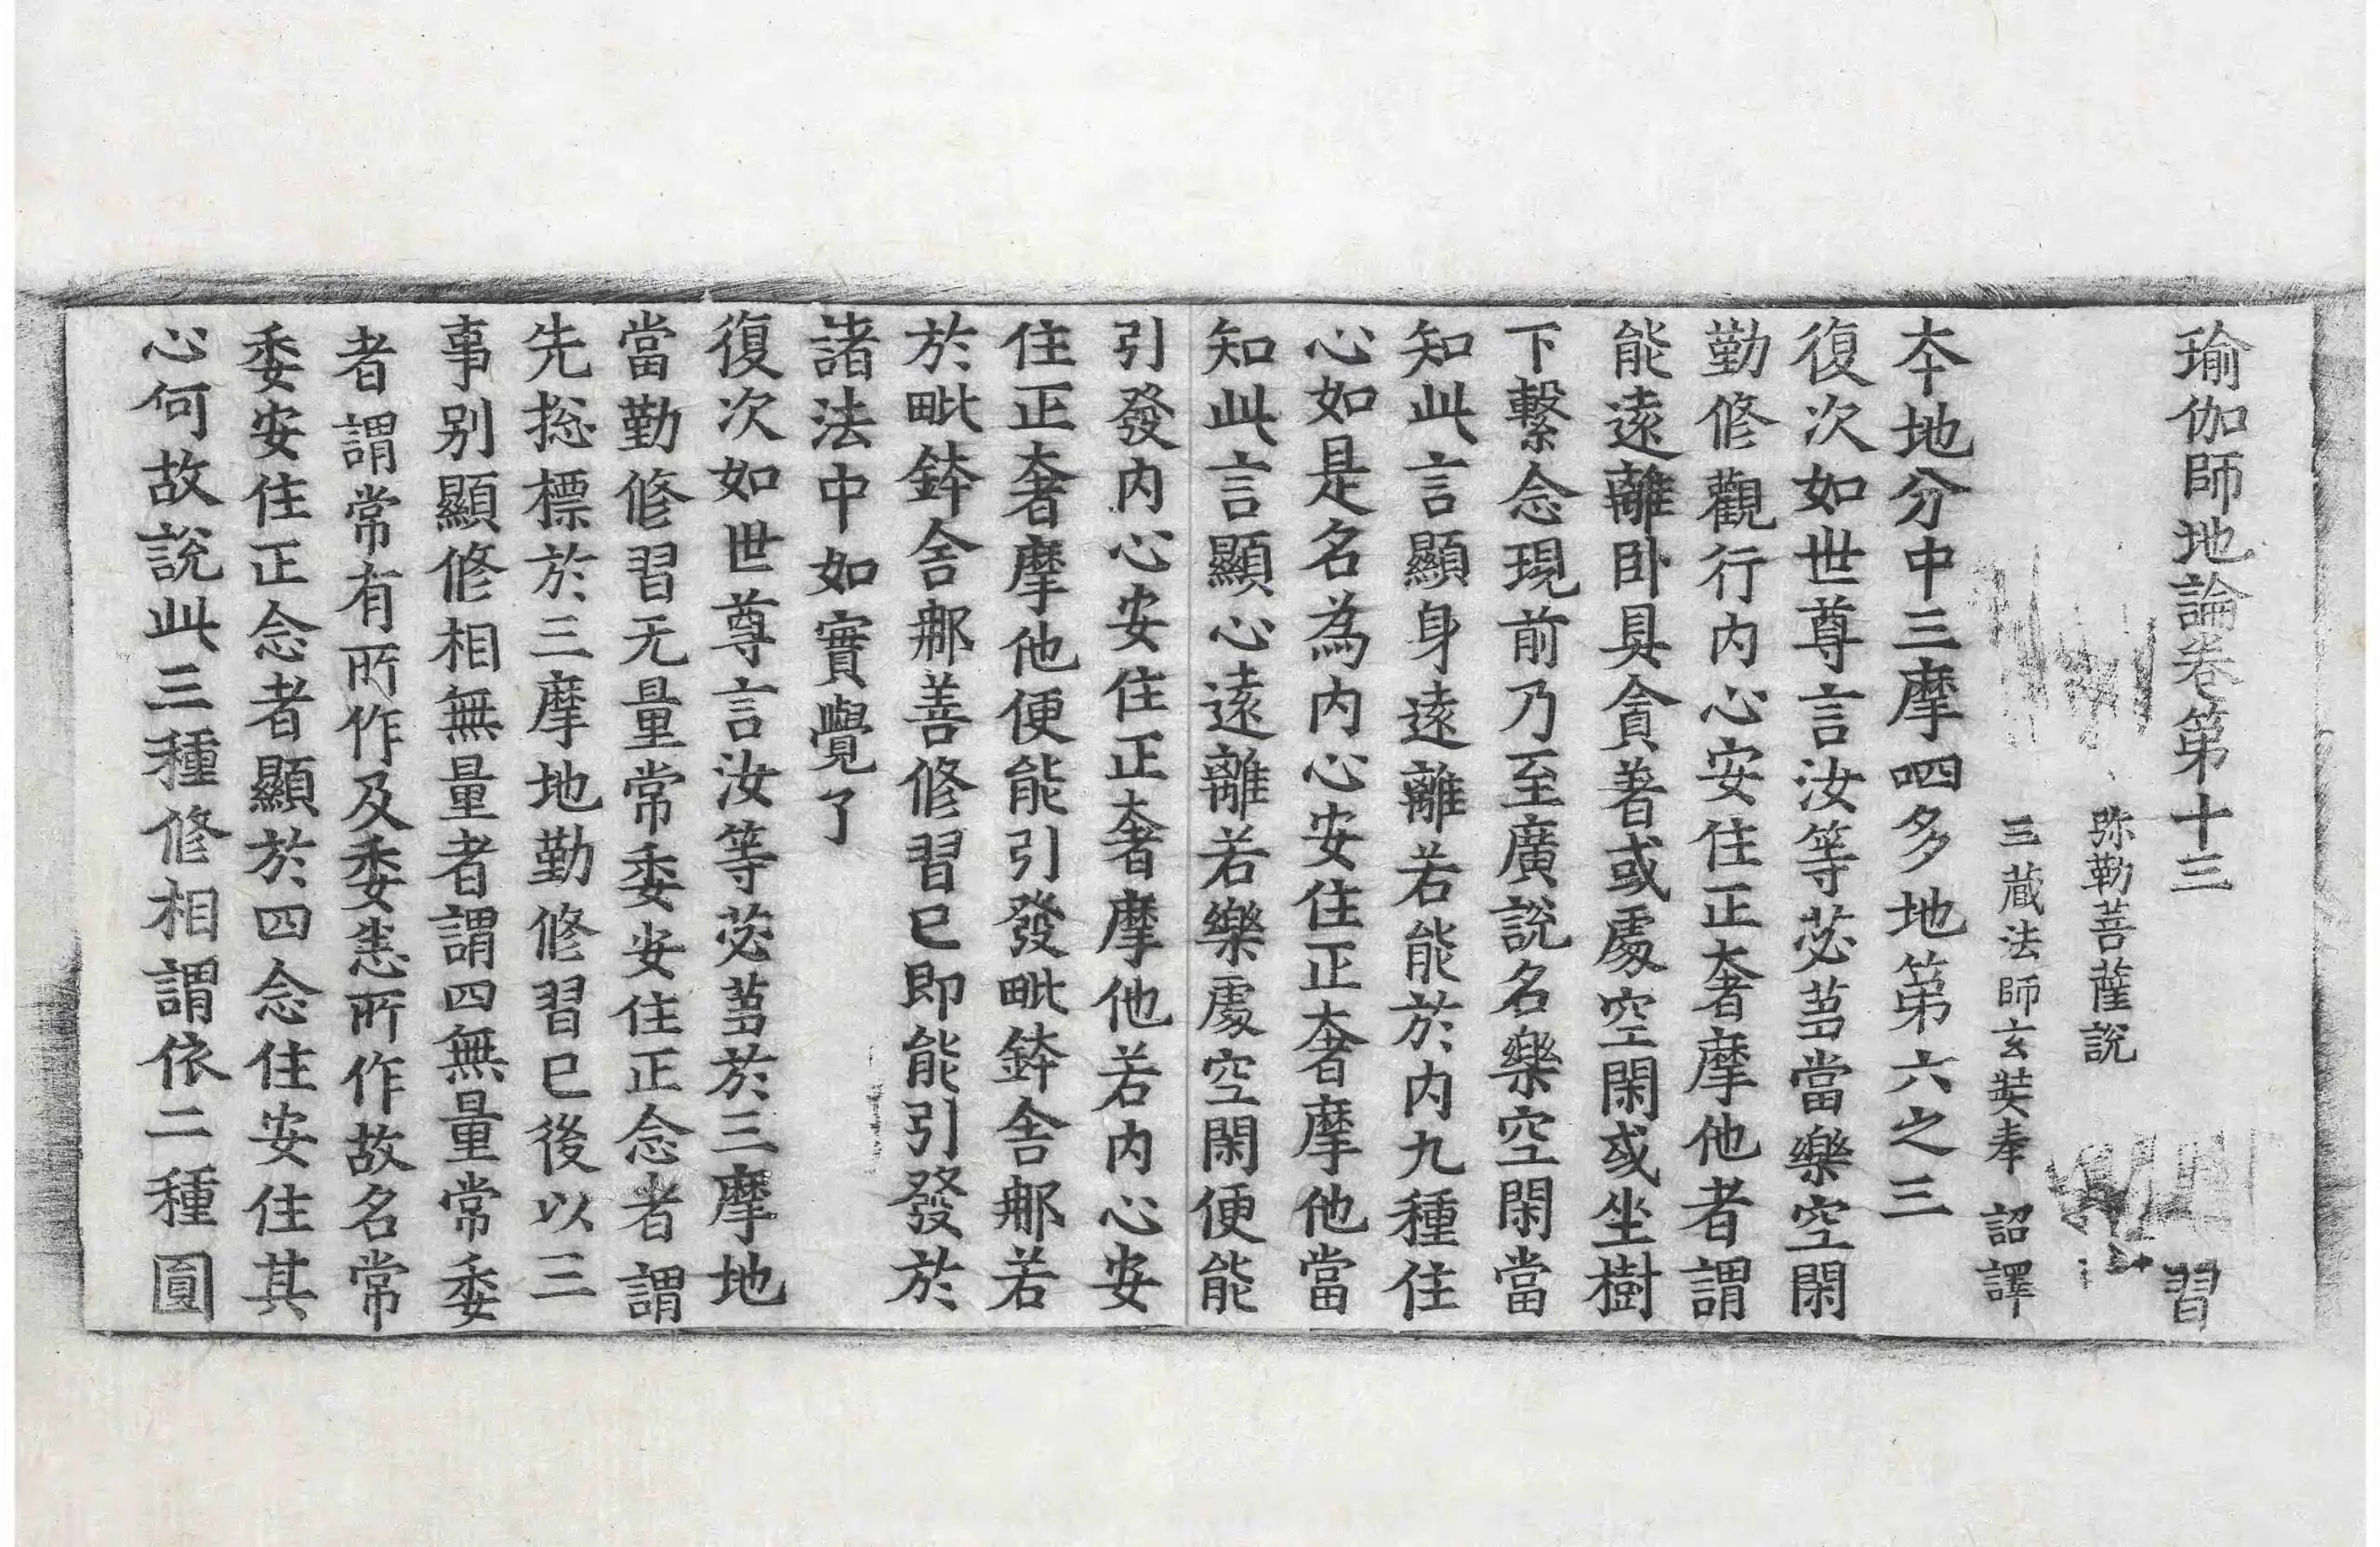 瑜伽師地論卷第十三 習
弥勒菩薩說
三蔵法師玄奘奉 詔譯
夲地分中三摩呬多地第六之三
復次如世尊言汝等苾蒭當樂空閑
勤修觀行内心安住正奢摩他者謂
能遠離卧具貪著或處空閑或坐樹
下繫念現前乃至廣說名樂空閑當
知此言顯身遠離若能於内九種住
心如是名為内心安住正奢摩他當
知此言顯心遠離若樂處空閑便能
引發内心安住正奢摩他若内心安
住正奢摩他便能引發毗鉢舍那若
於毗鉢舍那善修習已即能引發於
諸法中如實覺了
復次如世尊言汝等苾蒭於三摩地
當勤修習无量常委安住正念者謂
先揔標於三摩地勤修習已後以三
事別顯修相無量者謂四無量常委
者謂常有所作及委悉所作故名常
委安住正念者顯於四念住安住其
心何故說此三種修相謂依二種圓